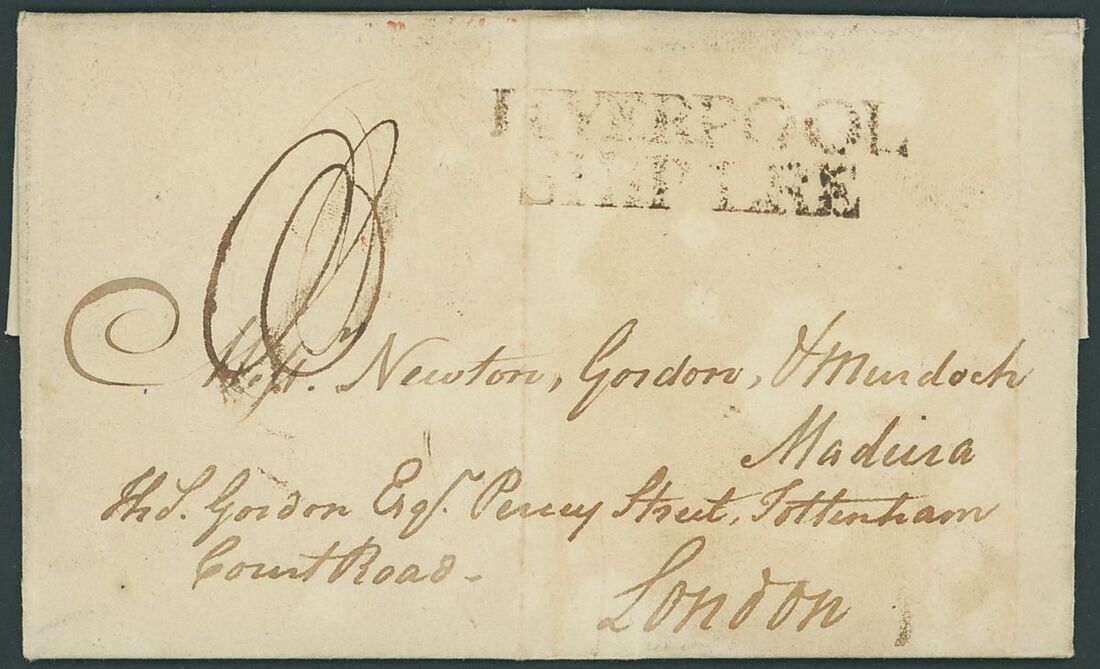 LIVERPOOL
SHIP LRE
Messrs. Newton, Gordon, & Murdoch
Madeira
Thos. Gordon Esqr. Percy Street, Tottenham
Court Road -
London